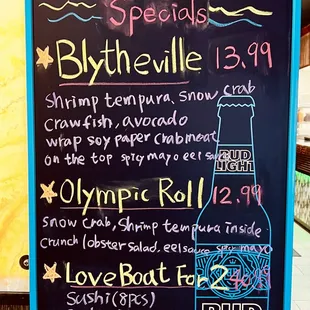 Specials
Blytheville 13.99
Shrimp tempura, snow crab
crawfish, avocado
wrap soy paper crabmeat
on the top spicy mayo eel sauce
BUD
LIGHT
Olympic Roll 12.99
snow crab, Shrimp tempura inside
crunch lobster salad, eel sauce spicy mayo
Love Boat For 2
Sushi (8pcs)
BUD